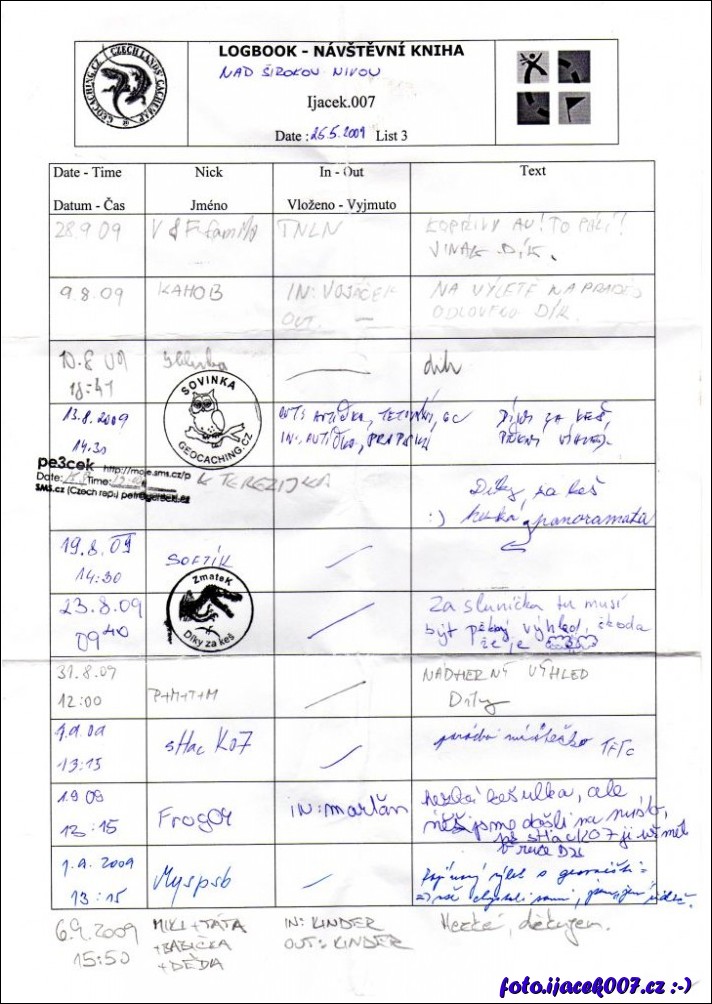 GEOCACHING.CZ CZECH LANDS' CACHE MAP @
LOGBOOK - NÁVŠTĚVNÍ KNIHA
NAD ŠIROKOU NIVOU
Ijacek.007
Date : 25.5.2009 List 3
Date - Time Nick In - Out Text
Datum - Čas Jméno Vloženo - Vyjmuto
28.9 09 V & F family TNLN KOPŘIVY AU! TO PÁLÍ!
JINAK DÍK.
9.8.09 KAHOB IN: VOJÁČEK NA VÝLETĚ NA PRADĚD
OUT: — ODLOVENO DÍK.
10.8 09 dík
18:41
SOVINKA
GEOCACHING.CZ
13.8.2009 OUT: AUTÍČKA, GC DÍKY ZA KEŠ,
14:30 IN: AUTÍČKA, PĚKNÝ VÝHLED.
pe3cek http://moje.sms.cz/p
Date: Time:
SMS.cz (Czech rep.)
K TEREZIJKA
Díky za keš
:) panoramata
19.8.09 SOFTÍK
14:30
ZmateK
Díky za keš
23.8.09 Za sluníčka tu musí
09 40 být pěkný výhled, škoda
že je
31.8.09 NÁDHERNÝ VÝHLED
12:00 P+M+T+M Díky
1.9.09 sHac K07 paráda místečko TFTC
13:15
1.9 09 Frog04 IN: marťan hezká kešulka, ale
13:15 než jsme došli na místo,
sHacK07 ji už měl
v ruce Dík
1.9.2009 Myspsb
13:15
6.9.2009 MIKI+TÁTA IN: KINDER Hezké, děkujem.
15:50 +BABIČKA OUT: KINDER
+DĚDA
foto.ijacek007.cz :-)